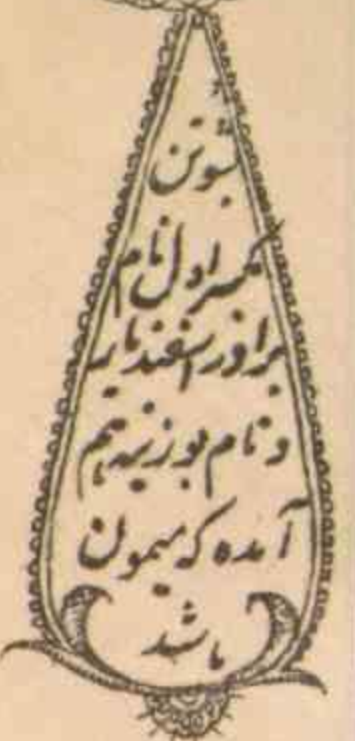 پشوتن
بکسر اول نام
برادر اسفندیار
و نام بوزینه هم
آمده که میمون
باشد